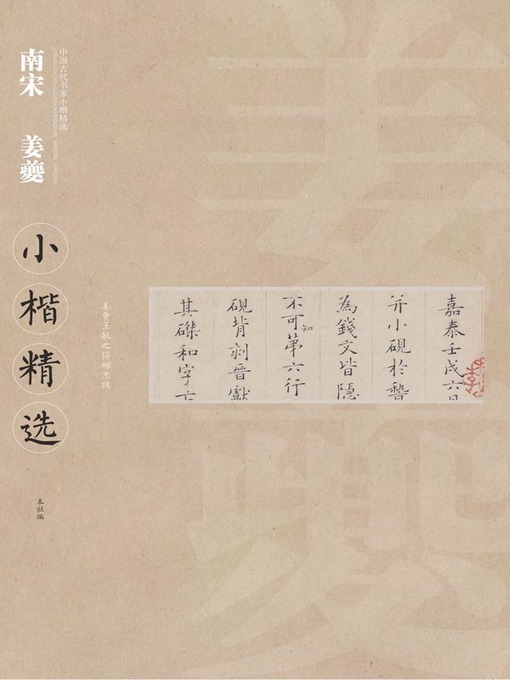 中国古代书家小楷精选
南宋 姜夔
小楷精选
姜夔王献之保母志跋
本社编
嘉泰壬戌六月
并小砚於嵇
為錢文皆隱
不可知第六行
硯背剥晉獻
其磔和字亡
姜夔